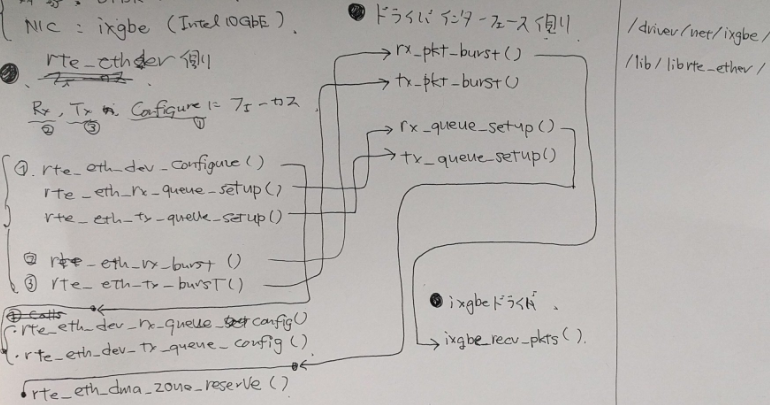 NIC : ixgbe (Intel 10GbE).
rte_ethdev 側
Rx, Tx, Configure に フォーカス
② ③ ①
①. rte_eth_dev_configure()
rte_eth_rx_queue_setup()
rte_eth_tx_queue_setup()
② rte_eth_rx_burst ()
③ rte_eth_tx_bursT()
① calls
・rte_eth_dev_rx_queue_config()
・rte_eth_dev_tx_queue_config()
rte_eth_dma_zone_reserve()
● ドライバ インターフェース 側
rx_pkt_burst()
tx_pkt_burst()
rx_queue_setup()
tx_queue_setup()
● ixgbe ドライバ.
ixgbe_recv_pkts().
/driver/net/ixgbe/
/lib/librte_ether/